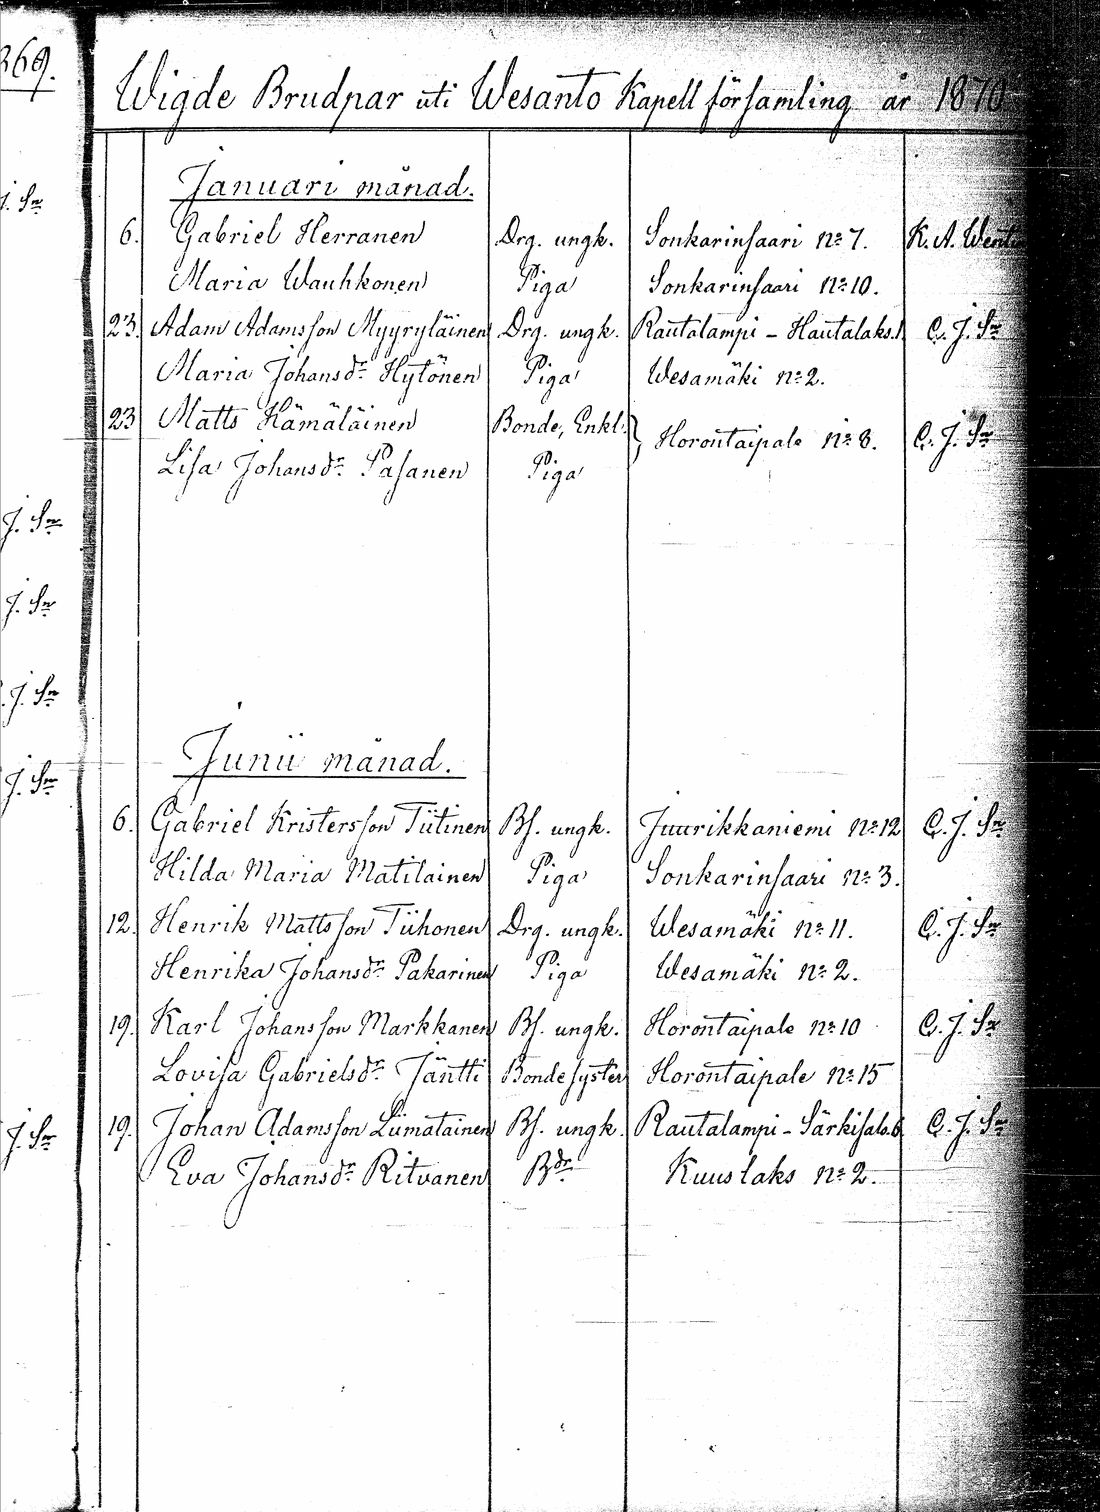 369.
Wigde Brudpar uti Wesanto Kapellförsamling år 1870
Januari månad.
6. Gabriel Herranen Drg. ungk. Sonkarinsaari No 7. K. A. Wentin
Maria Wauhkonen Piga Sonkarinsaari No 10.
23. Adam Adamsson Myyryläinen Drg. ungk. Rautalampi - Hautalaks.1. C. J. Sn
Maria Johansdr Hytönen Piga Wesamäki No 2.
23 Matts Hämäläinen Bonde, Enkl. } Horontaipale No 8. C. J. Sn
Lisa Johansdr Pasanen Piga
Junii månad.
6. Gabriel Kristersson Tiitinen Bs. ungk. Juurikkaniemi No 12 C. J. Sn
Hilda Maria Matilainen Piga Sonkarinsaari No 3.
12. Henrik Mattsson Tiihonen Drg. ungk. Wesamäki No 11. C. J. Sn
Henrika Johansdr Pakarinen Piga Wesamäki No 2.
19. Karl Johansson Markkanen Bs. ungk. Horontaipale No 10 C. J. Sn
Lovisa Gabrielsdr Jäntti Bondesyster Horontaipale No 15
19. Johan Adamsson Liimatainen Bs. ungk. Rautalampi - Särkisalo.6. C. J. Sn
Eva Johansdr Ritvanen Bdr. Kuuslaks No 2.